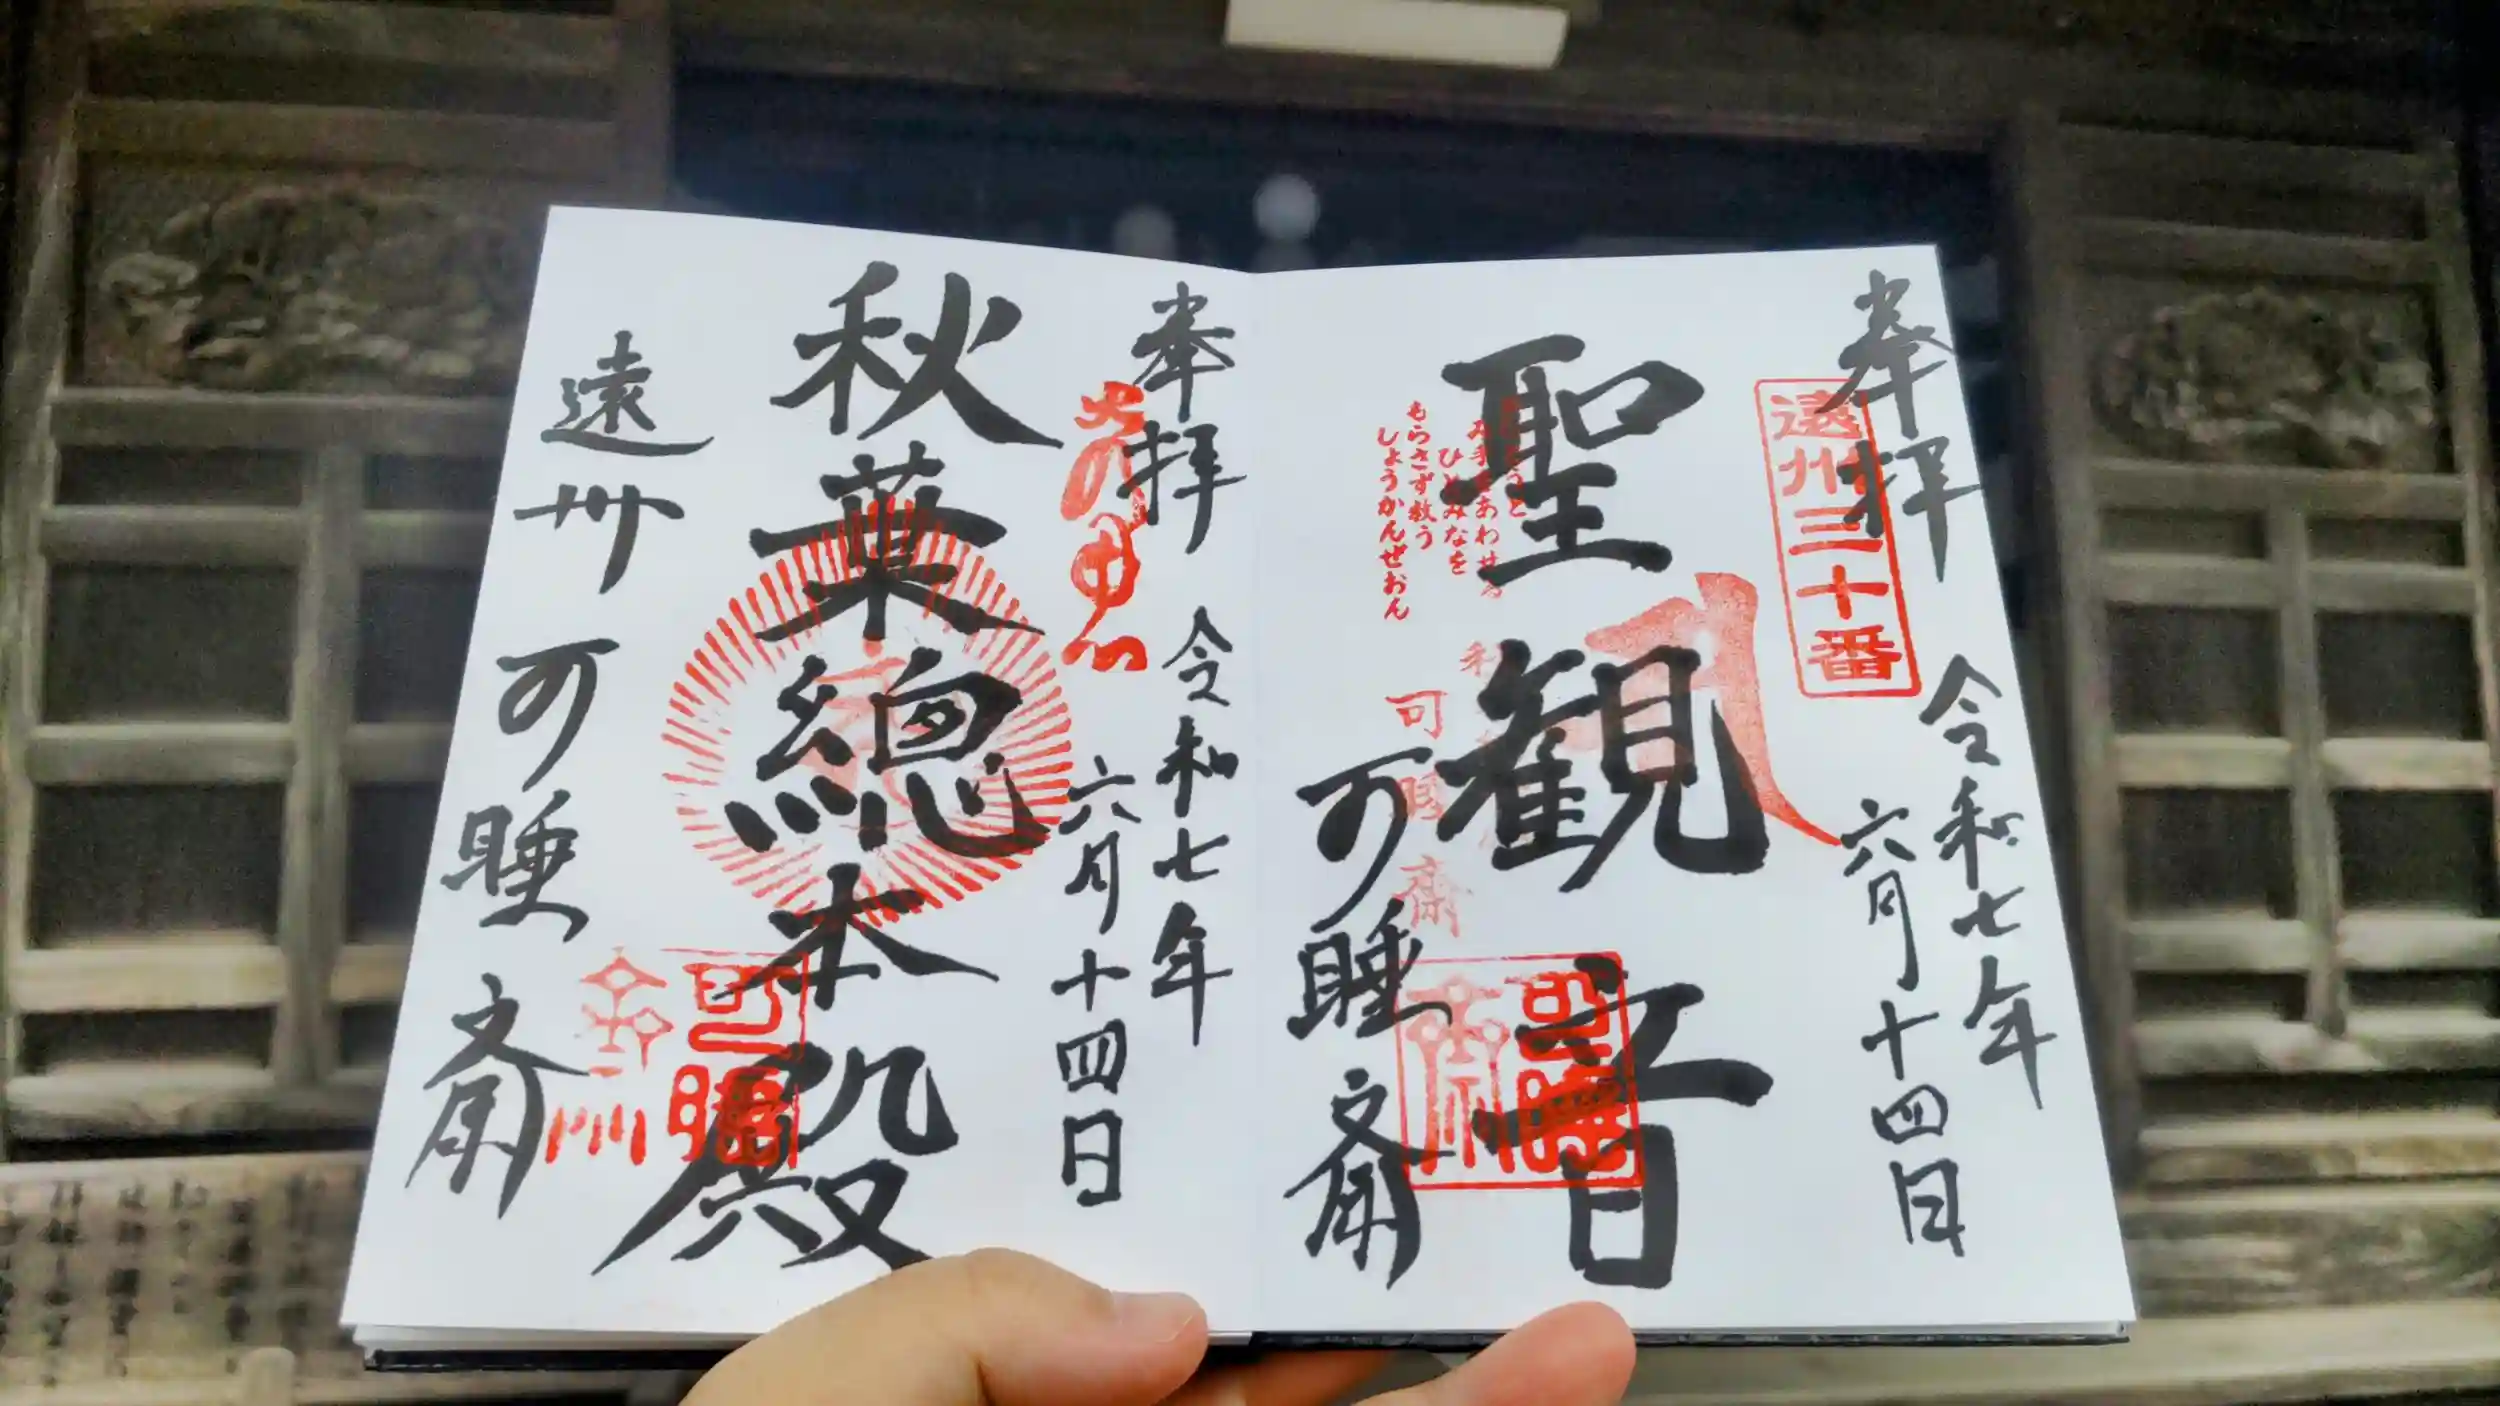 奉拝
遠州三十番
令和七年
六月十四日
聖観音
み手をあわせる
ひとみなを
もらさず救う
しょうかんぜおん
可睡斎
可睡斎
奉拝
令和七年
六月十四日
秋葉總本殿
遠州可睡斎